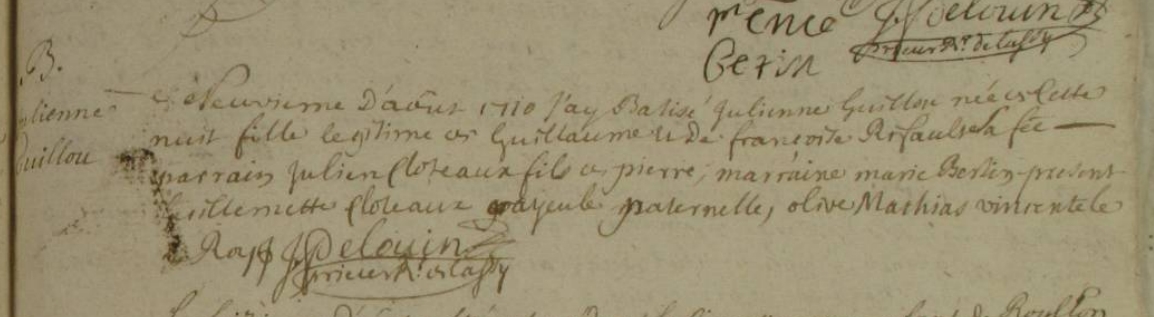 pr Ence JJ Delouin
prieur Rr de lassy
Berin
B.
Julienne
Guillou
Ce Neuvieme D'aoust 1710 J'ay Batisé Julienne Guillou née cette
nuit fille legitime de Guillaume et de francoise Rifault sa fée
parrain Julien Cloteaux fils de pierre, marraine marie Bertin present
Guillemette Cloteaux ayeule paternelle, olive Mathias vincente le
Roy JJ Delouin
prieur Rr de lassy